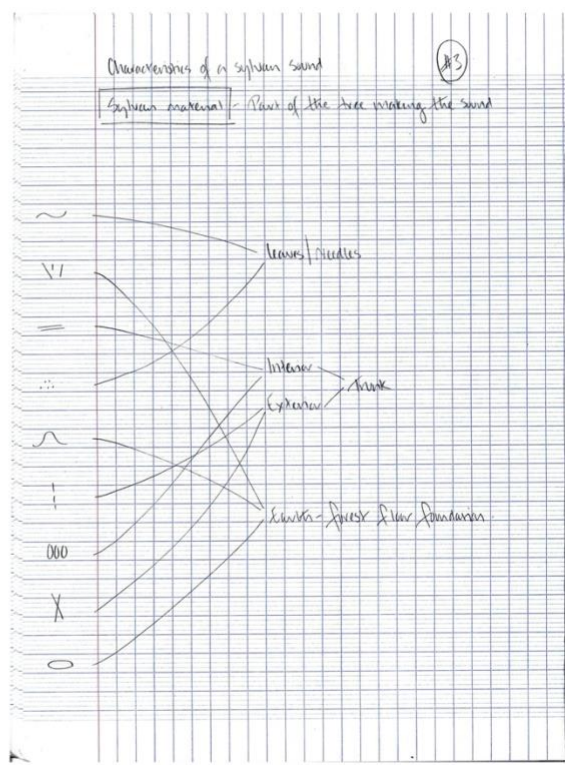 #3
Characteristics of a sylvan sound
Sylvan material - Part of the tree making the sound
leaves/Needles
Interior
Trunk
Exterior
Earth - forest floor foundation
000
X